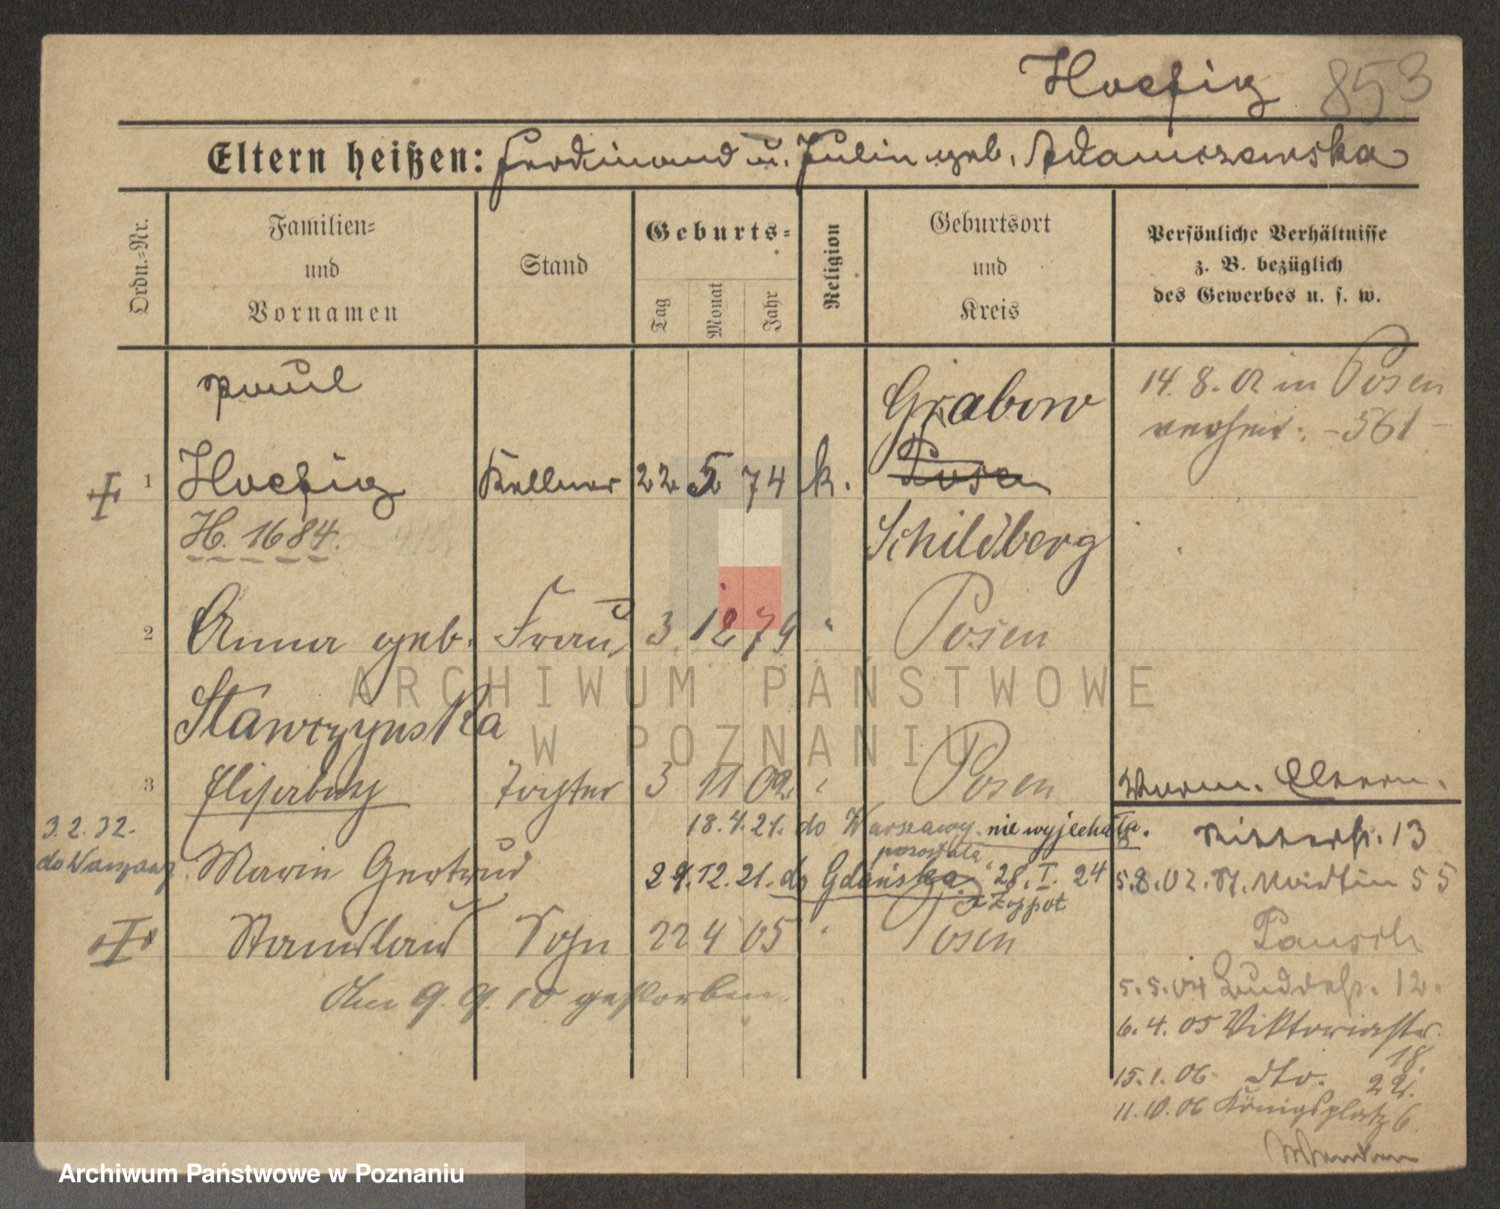 Hoefig 853
Eltern heißen: Ferdinand u. Julia geb. Adamczewska
Ordn.-Nr.
Familien-
und
Vornamen
Stand
Geburts-
Tag
Monat
Jahr
Religion
Geburtsort
und
Kreis
Persönliche Verhältnisse
z. B. bezüglich
des Gewerbes u. s. w.
Paul
Grabow
14. 8. 02 in Posen
verheir. -561-
1 Hoefig Kellner 22 5 74 k. Posen
H. 1684.
Schildberg
2 Anna geb. Frau 3 12 79 " Posen
Stawczynska
3 Elisabeth Tochter 3 11 02 " Posen
Wwrm. Eltern.
3.2.32. 18.4.21. do Warszawy. nie wyjechała. Ritterstr. 13
do Warszawy. Maria Gertrud pozostała
29.12.21. do Gdańska 28. I. 24 5.8.02. St. Martin 55
z Zoppot
Stanislaus Sohn 22 4 05 " Posen
Pausch
Am 9. 9. 10 gestorben
5.5.04 Buddestr. 12.
6.4.05 Viktoriastr.
18.
15.1.06 dto. 22.
11.10.06 Königsplatz 6
ARCHIWUM PAŃSTWOWE
W POZNANIU
Archiwum Państwowe w Poznaniu